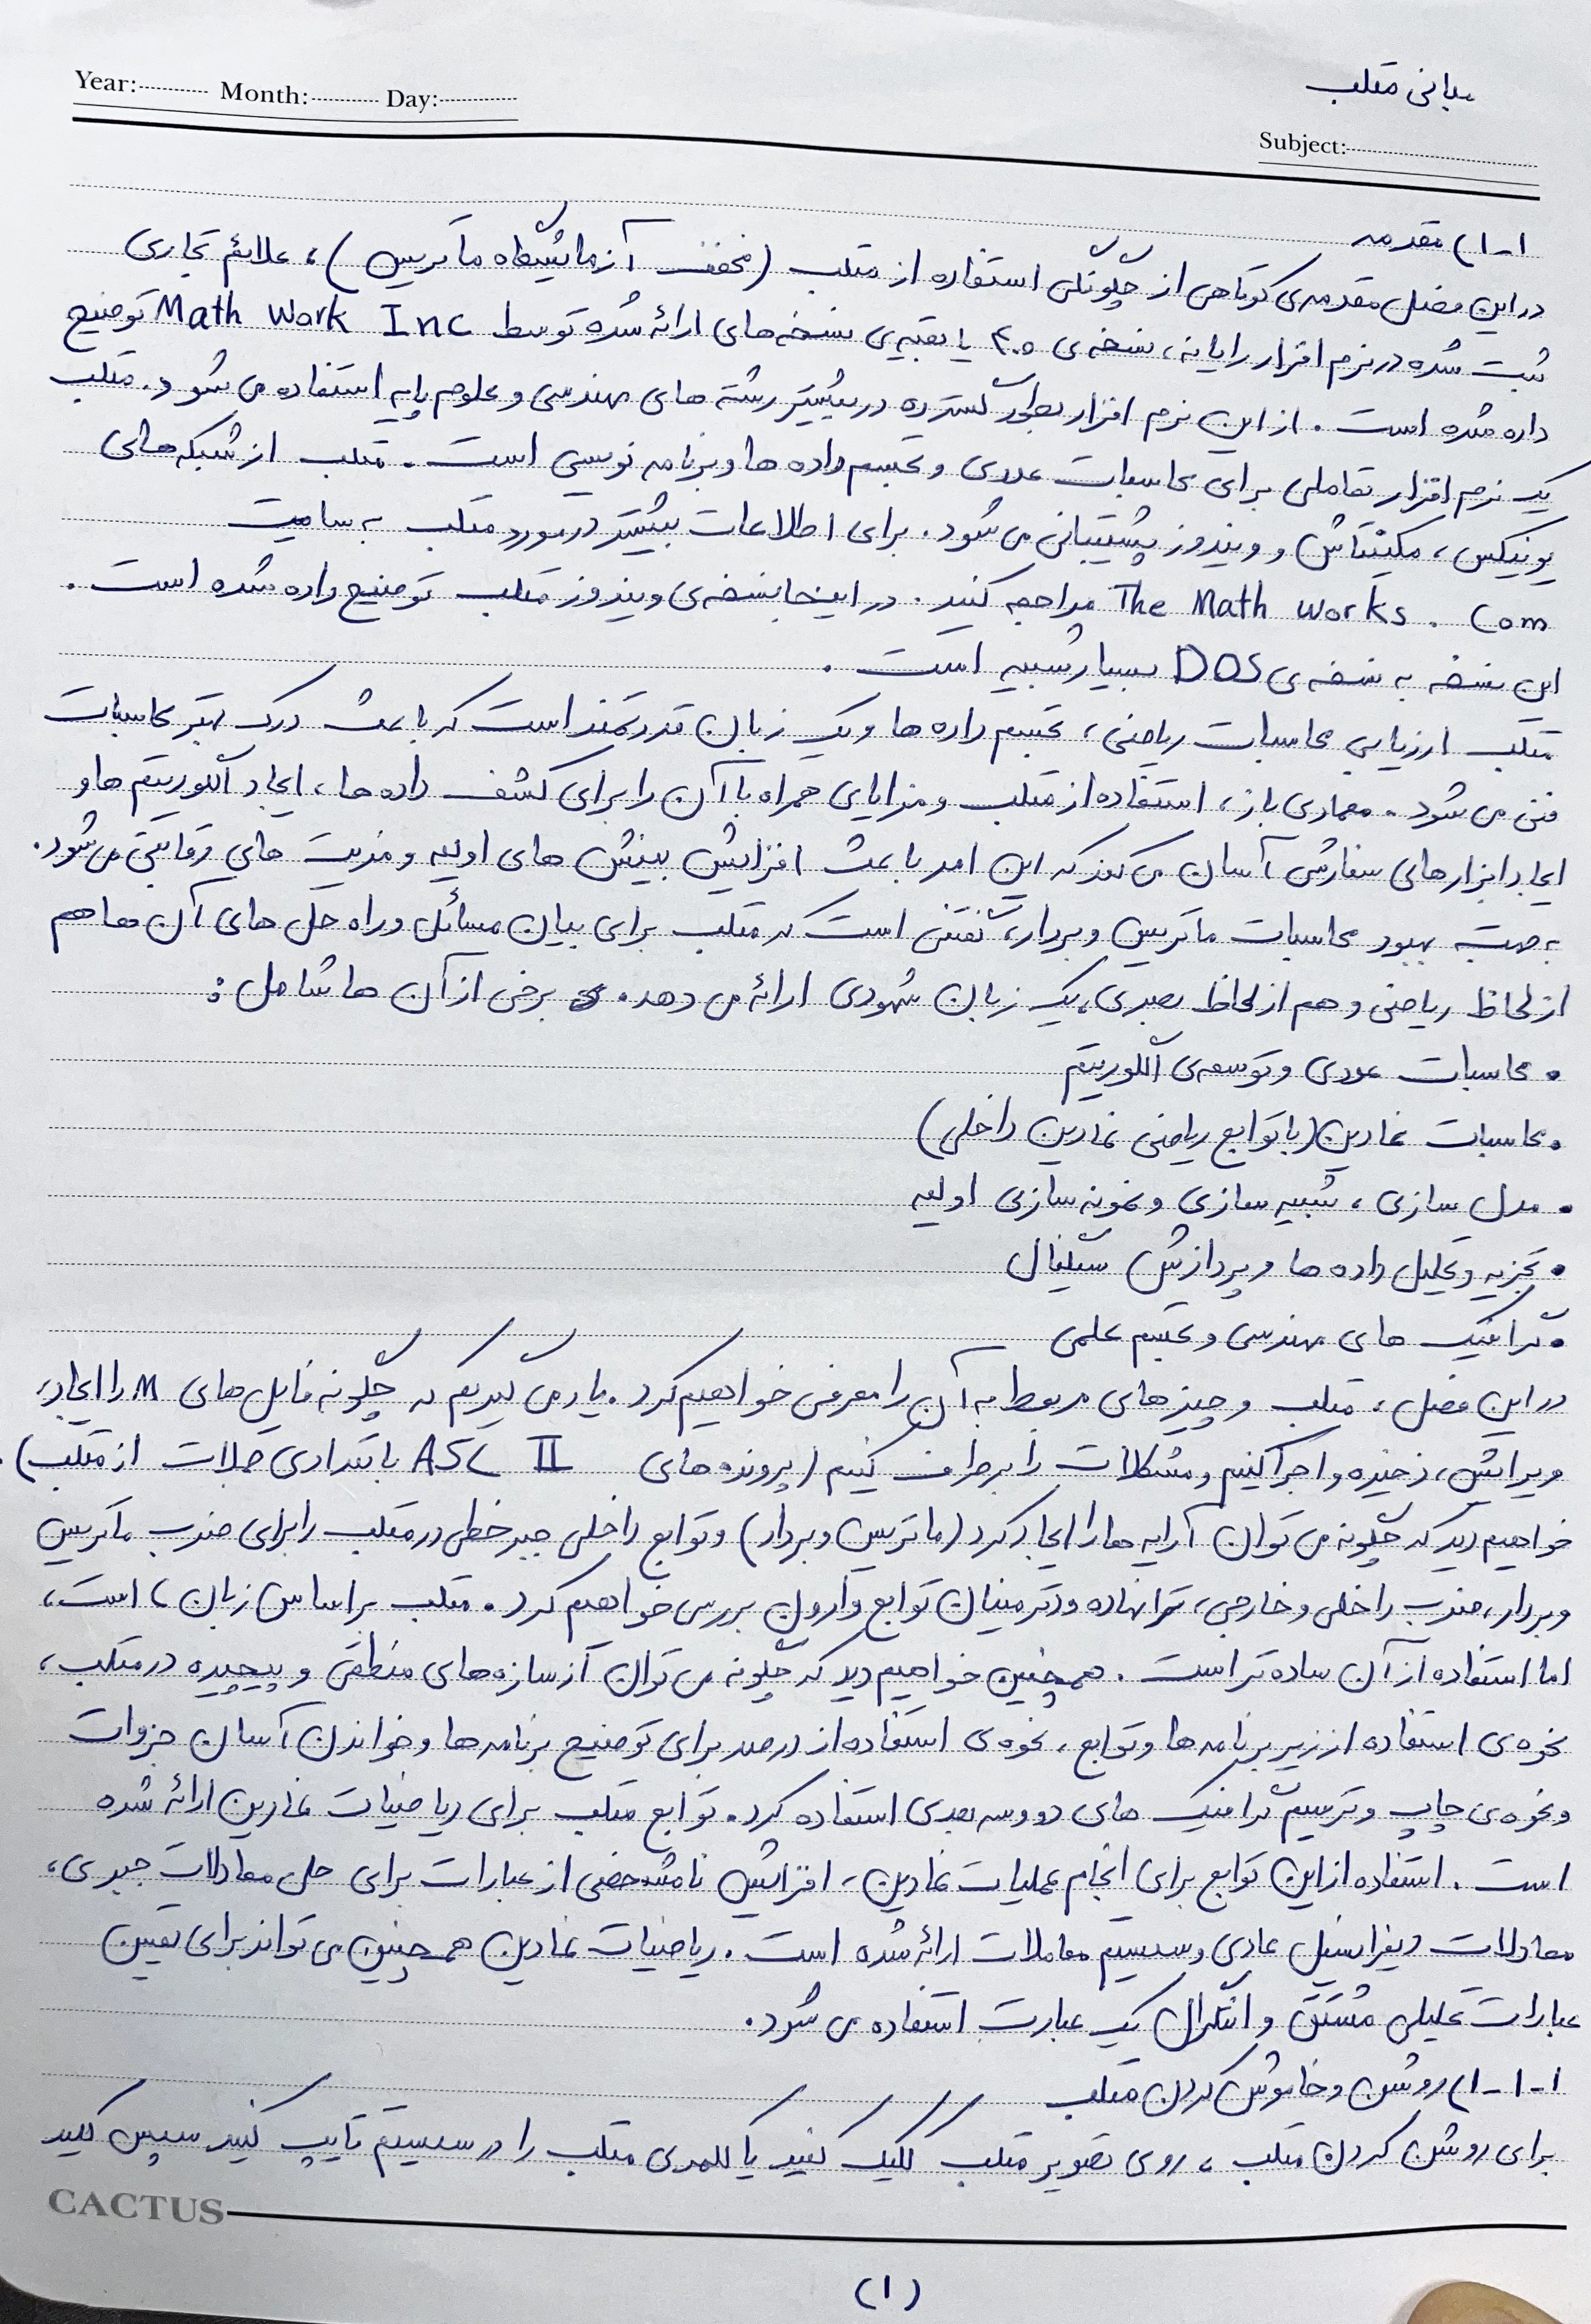 مبانی متلب
Year: Month: Day:
Subject:
۱-۱) مقدمه
در این فصل مقدمه‌ی کوتاهی از چگونگی استفاده از متلب (مخفف آزمایشگاه ماتریس)، علائم تجاری
ثبت شده در نرم افزار رایانه، نسخه‌ی ۴.۰ یا بقیه‌ی نسخه‌های ارائه شده توسط Math Work Inc توضیح
داده شده است. از این نرم افزار بطور گسترده در بیشتر رشته های مهندسی و علوم پایه استفاده می شود. متلب
یک نرم افزار تعاملی برای محاسبات عددی و تجسم داده ها و برنامه نویسی است. متلب از شبکه‌های
یونیکس، مکینتاش و ویندوز پشتیبانی می شود. برای اطلاعات بیشتر در مورد متلب به سایت
The Math Works . Com مراجعه کنید. در اینجا نسخه‌ی ویندوز متلب توضیح داده شده است.
این نسخه به نسخه‌ی DOS بسیار شبیه است.
متلب ارزیابی محاسبات ریاضی، تجسم داده ها و یک زبان قدرتمند است که باعث درک بهتر محاسبات
فنی می شود. معماری باز، استفاده از متلب و مزایای همراه با آن را برای کشف داده ها، ایجاد الگوریتم ها و
ایجاد ابزارهای سفارشی آسان می کند که این امر باعث افزایش بینش های اولیه و مزیت های رقابتی می شود.
به جهت بهبود محاسبات ماتریس و بردار، گفتنی است که متلب برای بیان مسائل و راه حل های آن ها هم
از لحاظ ریاضی و هم از لحاظ بصری، یک زبان شهودی ارائه می دهد. برخی از آن ها شامل:
• محاسبات عددی و توسعه‌ی الگوریتم
• محاسبات نمادین (با توابع ریاضی نمادین داخلی)
• مدل سازی، شبیه سازی و نمونه سازی اولیه
• تجزیه و تحلیل داده ها و پردازش سیگنال
• گرافیک های مهندسی و تجسم علمی
در این فصل، متلب و چیزهای مربوط به آن را معرفی خواهیم کرد. یاد می گیریم که چگونه فایل های M را ایجاد،
ویرایش، ذخیره و اجرا کنیم و مشکلات را برطرف کنیم (پرونده های ASC II با تعدادی جملات از متلب).
خواهیم دید که چگونه می توان آرایه ها را ایجاد کرد (ماتریس و بردار) و توابع داخلی جبر خطی در متلب را برای ضرب ماتریس
و بردار، ضرب داخلی و خارجی، ترانهاده و دترمینان توابع وارون بررسی خواهیم کرد. متلب براساس زبان است،
اما استفاده از آن ساده تر است. همچنین خواهیم دید که چگونه می توان از سازه های منطقی و پیچیده در متلب،
نحوه‌ی استفاده از زیر برنامه ها و توابع، نحوه‌ی استفاده از درصد برای توضیح برنامه ها و خواندن آسان جزوات
و نحوه‌ی چاپ و ترسیم گرافیک های دو و سه بعدی استفاده کرد. توابع متلب برای ریاضیات نمادین ارائه شده
است. استفاده از این توابع برای انجام عملیات نمادین، افزایش نامشخصی از عبارات برای حل معادلات جبری،
معادلات دیفرانسیل عادی و سیستم معاملات ارائه شده است. ریاضیات نمادین همچنین می تواند برای تعیین
عبارات تحلیلی مشتق و انتگرال یک عبارت استفاده می شود.
۱-۱-۱) روشن و خاموش کردن متلب
برای روشن کردن متلب، روی تصویر متلب کلیک کنید یا کلمه‌ی متلب را در سیستم تایپ کنید سپس کلید
CACTUS
(۱)